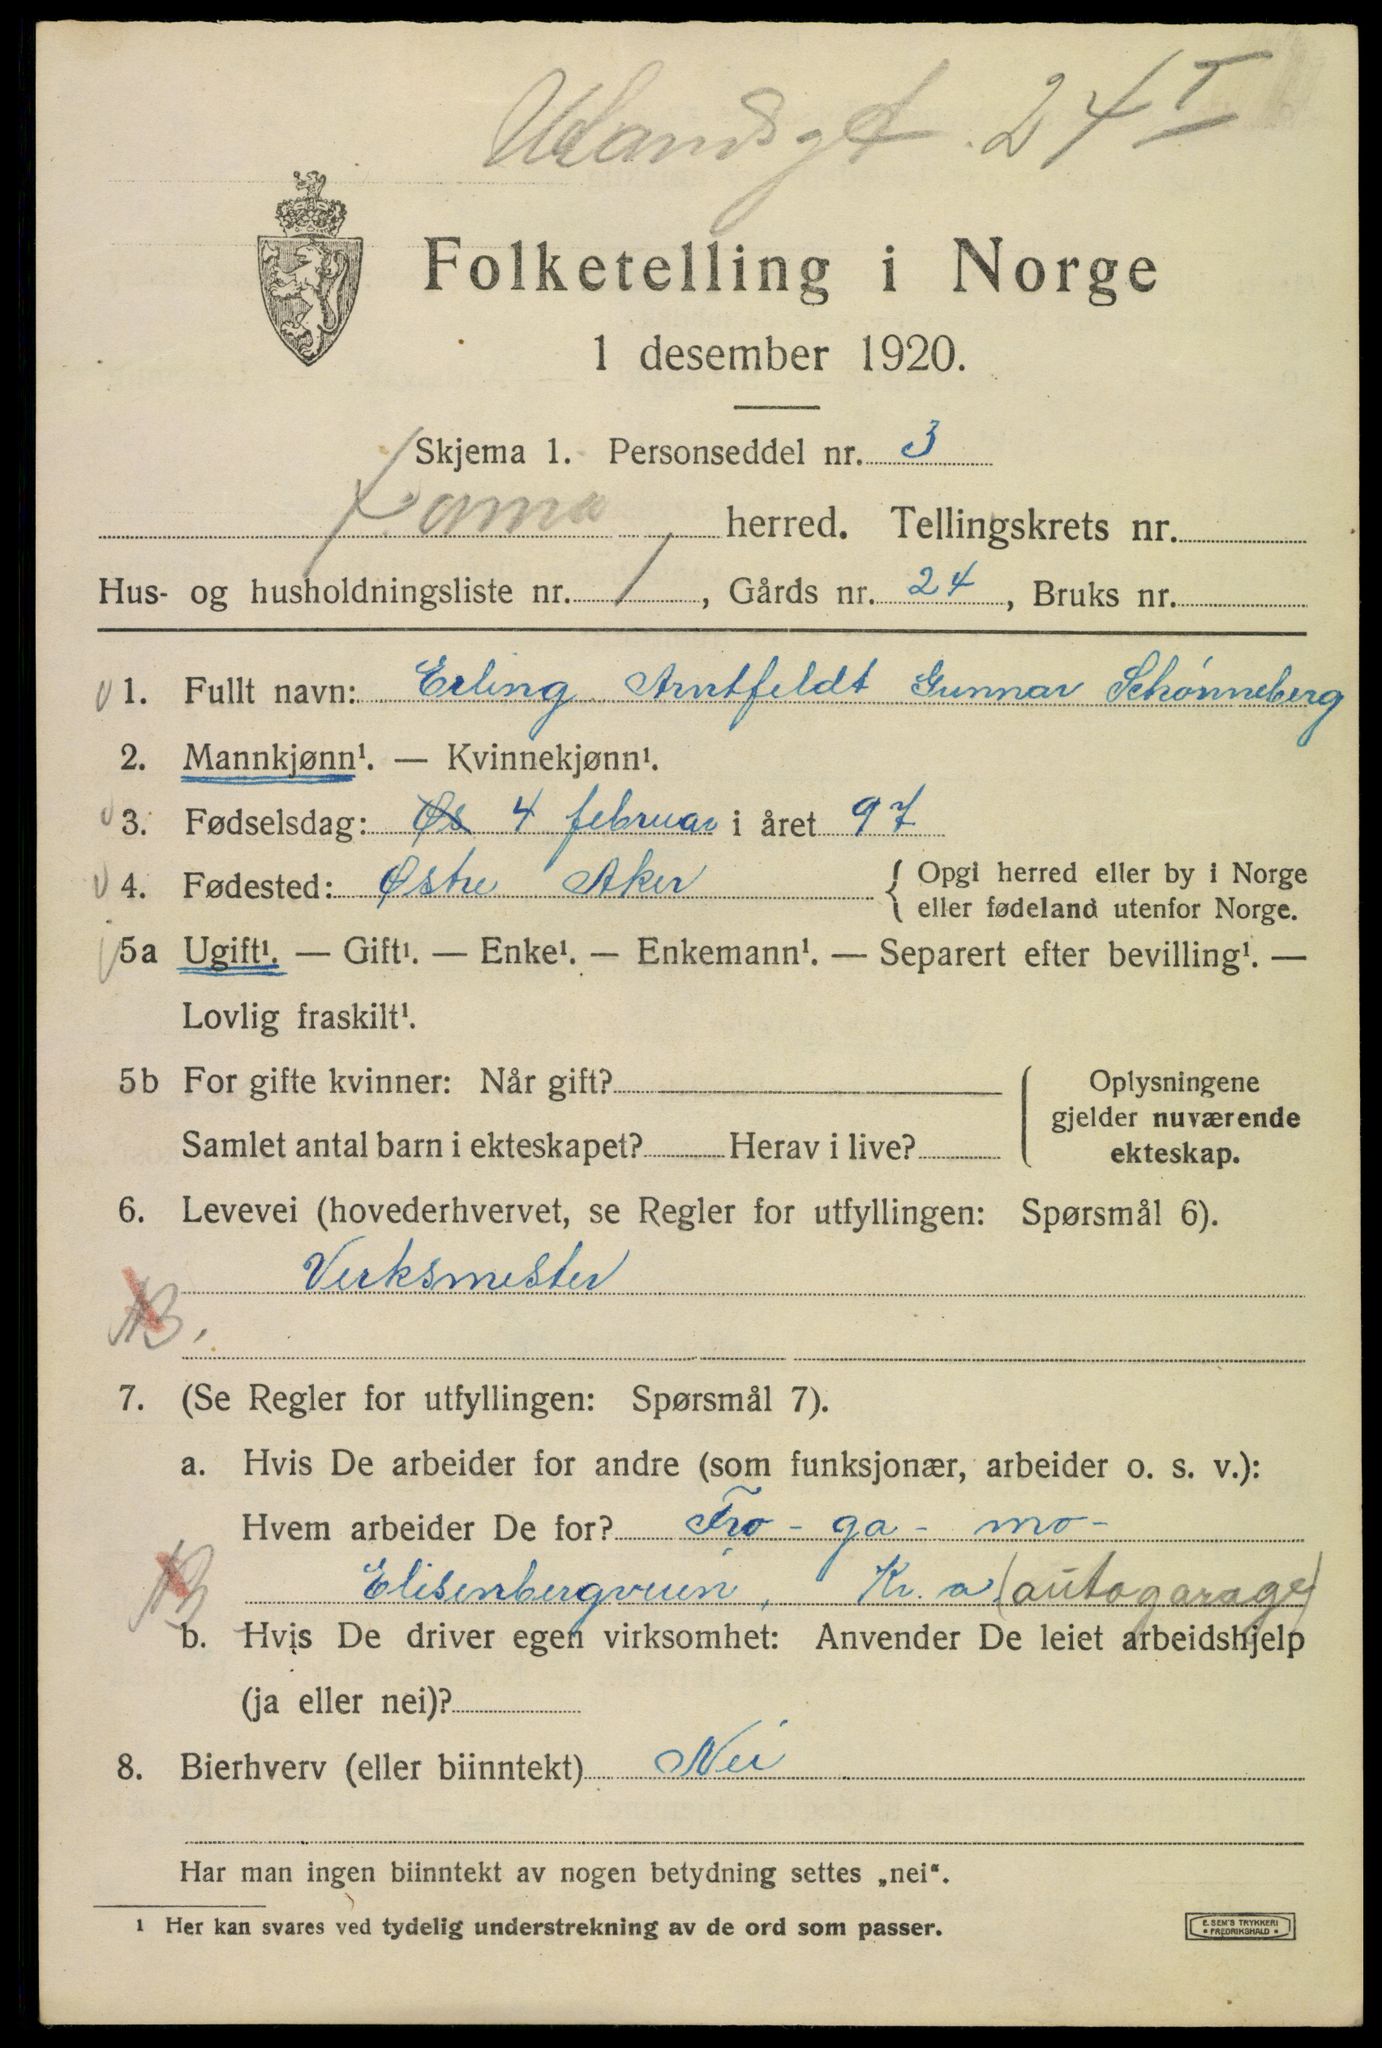 Uelandsgt. 24 I
Folketelling i Norge
1 desember 1920.
Skjema 1. Personseddel nr. 3
herred. Tellingskrets nr.
Hus- og husholdningsliste nr. 1, Gårds nr. 24, Bruks nr.
1. Fullt navn: Erling Arntfeldt Gunnar Schønneberg
2. Mannkjønn¹. — Kvinnekjønn¹.
3. Fødselsdag: Øs 4 februar i året 97
4. Fødested: Østre Aker { Opgi herred eller by i Norge
eller fødeland utenfor Norge.
5a Ugift¹. — Gift¹. — Enke¹. — Enkemann¹. — Separert efter bevilling¹. —
Lovlig fraskilt¹.
5b For gifte kvinner: Når gift?
Samlet antal barn i ekteskapet? Herav i live?
Oplysningene
gjelder nuværende
ekteskap.
6. Levevei (hovederhvervet, se Regler for utfyllingen: Spørsmål 6).
Verksmester
7. (Se Regler for utfyllingen: Spørsmål 7).
a. Hvis De arbeider for andre (som funksjonær, arbeider o. s. v.):
Hvem arbeider De for? Fro - ga - mo -
Elisenbergveien, Kr. a (autogarage)
b. Hvis De driver egen virksomhet: Anvender De leiet arbeidshjelp
(ja eller nei)?
8. Bierhverv (eller biinntekt) Nei
Har man ingen biinntekt av nogen betydning settes „nei“.
¹ Her kan svares ved tydelig understrekning av de ord som passer.
E. SEM'S TRYKKERI
* FREDRIKSHALD *